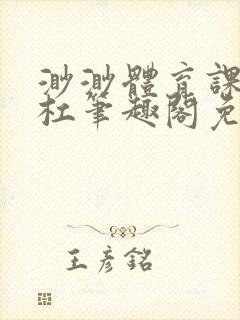 渺渺體育課
杜筆趣閣免
王彥銘